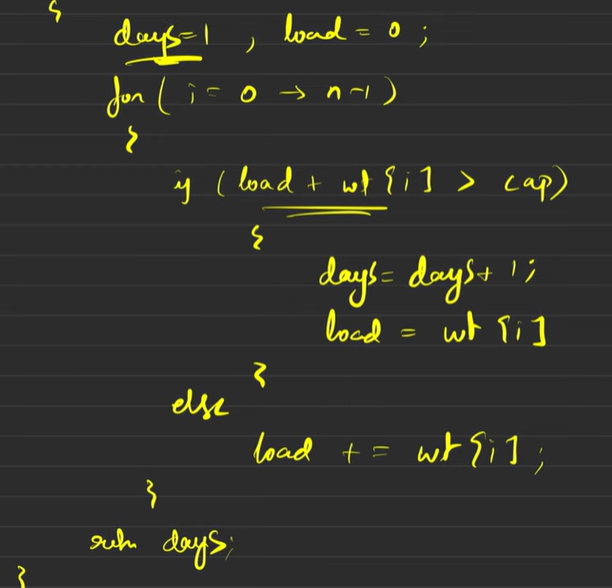 {
days=1 , load = 0 ;
for ( i = 0 → n-1 )
{
if ( load + wt [i] > cap)
{
days = days + 1;
load = wt [i]
}
else
load += wt [i] ;
}
return days;
}